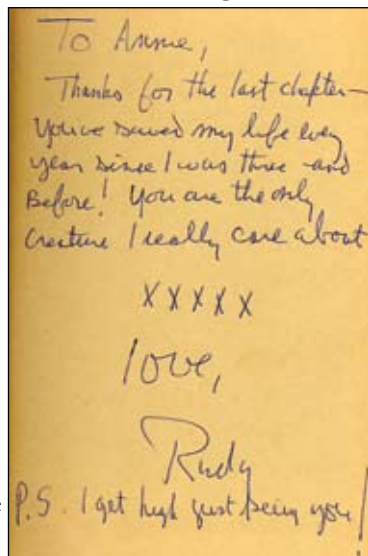 To Annie,
Thanks for the last chapter—
You've saved my life every
year since I was three - and
Before! You are the only
Creature I really care about
X X X X X
love,
Rudy
P.S. I get high just being you!